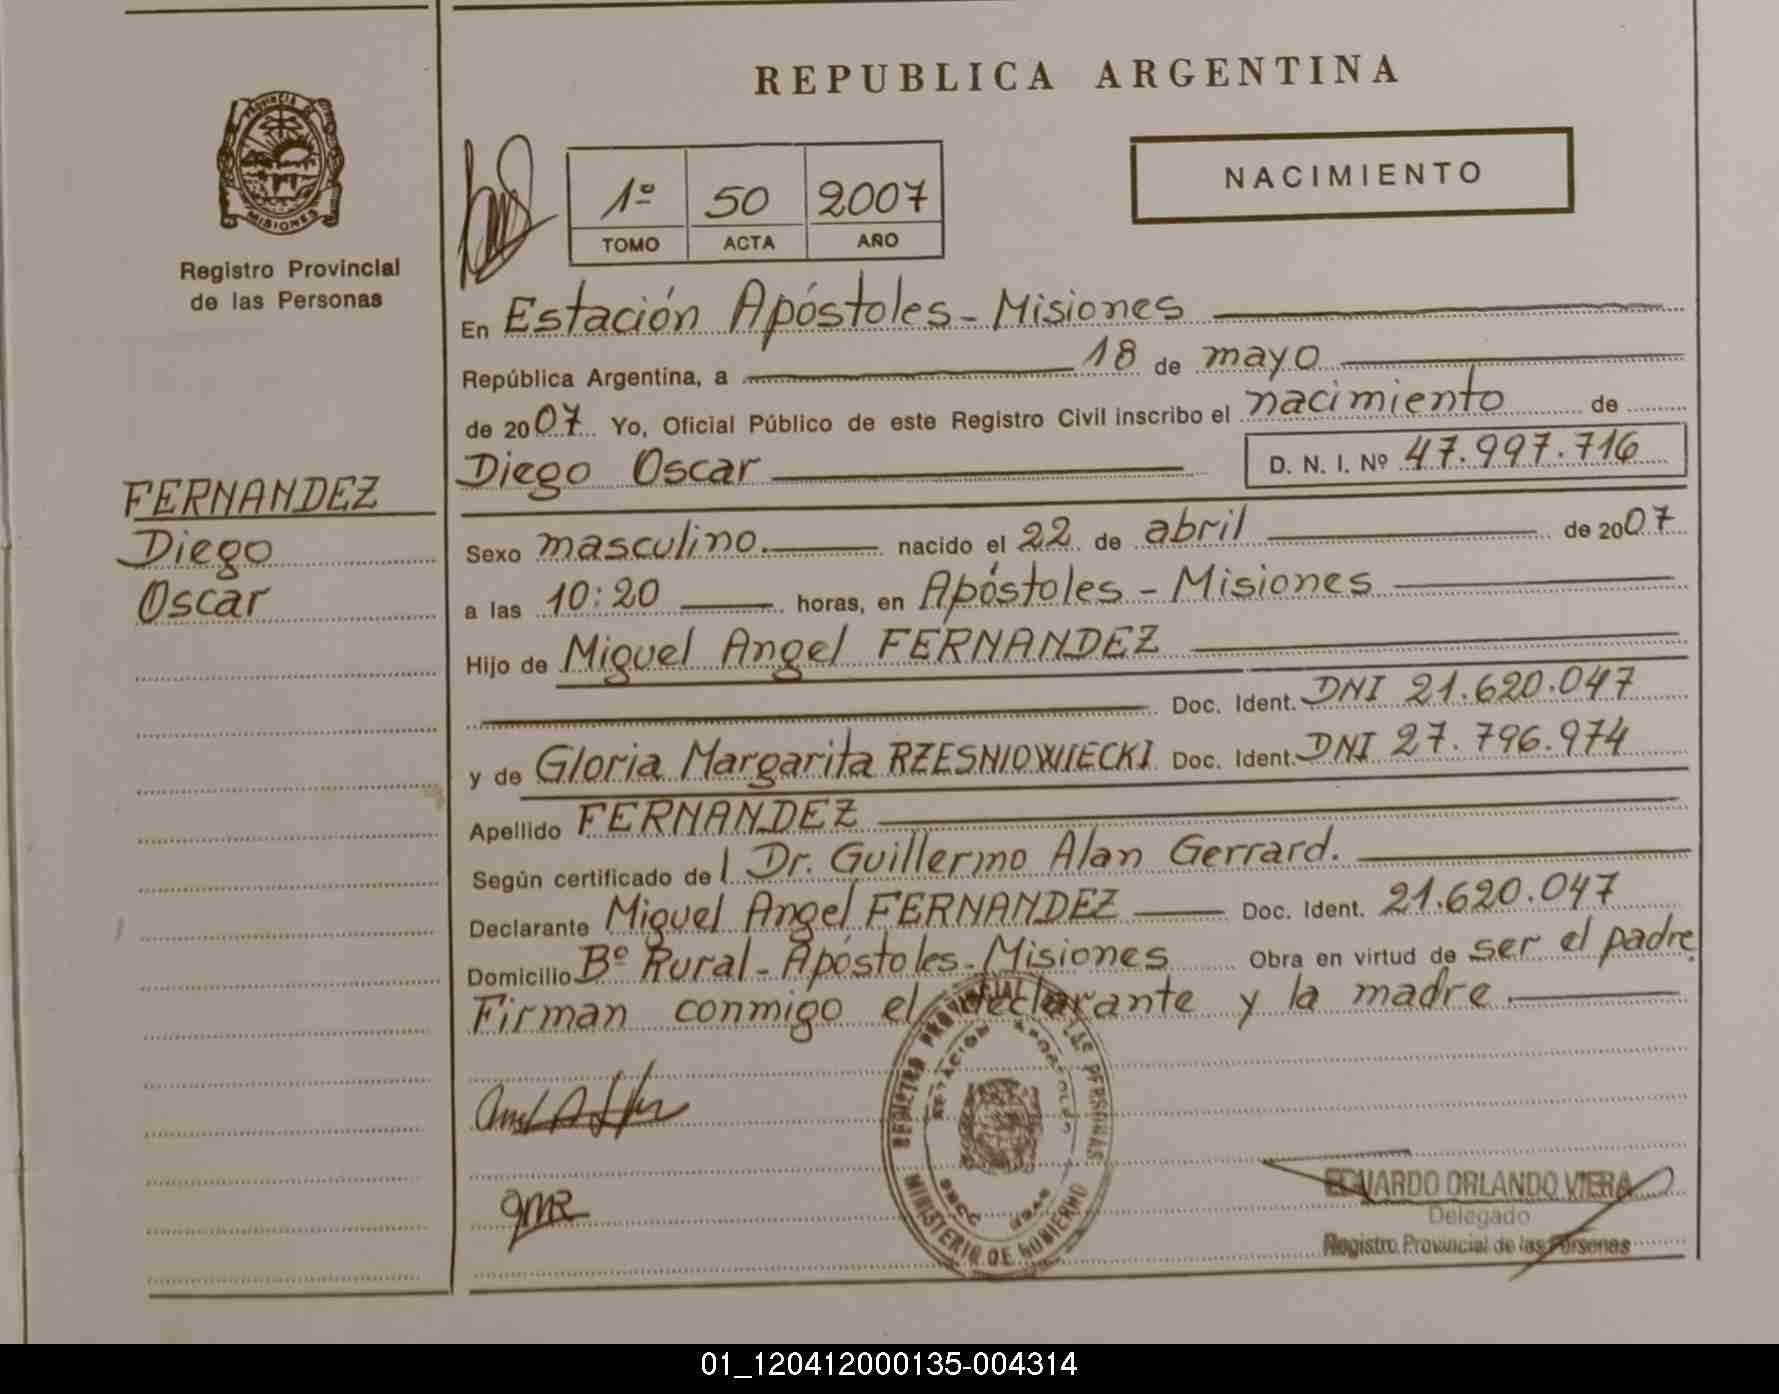 REPUBLICA ARGENTINA
PROVINCIA DE
MISIONES
Registro Provincial
de las Personas
1º 50 2007
TOMO ACTA AÑO
NACIMIENTO
En Estación Apóstoles - Misiones
República Argentina, a 18 de mayo
de 2007 Yo, Oficial Público de este Registro Civil inscribo el nacimiento de
Diego Oscar D. N. I. Nº 47.997.716
FERNANDEZ
Diego
Oscar
Sexo masculino. nacido el 22 de abril de 2007
a las 10:20 horas, en Apóstoles - Misiones
Hijo de Miguel Angel FERNANDEZ
Doc. Ident. DNI 21.620.047
y de Gloria Margarita RZESNIOWIECKI Doc. Ident. DNI 27.796.974
Apellido FERNANDEZ
Según certificado del Dr. Guillermo Alan Gerrard.
Declarante Miguel Angel FERNANDEZ Doc. Ident. 21.620.047
Domicilio Bº Rural - Apóstoles - Misiones Obra en virtud de ser el padre.
Firman conmigo el declarante y la madre
REGISTRO PROVINCIAL DE LAS PERSONAS
ESTACION APOSTOLES
MINISTERIO DE GOBIERNO
GMR
EDUARDO ORLANDO VIERA
Delegado
Registro Provincial de las Personas
01_120412000135-004314